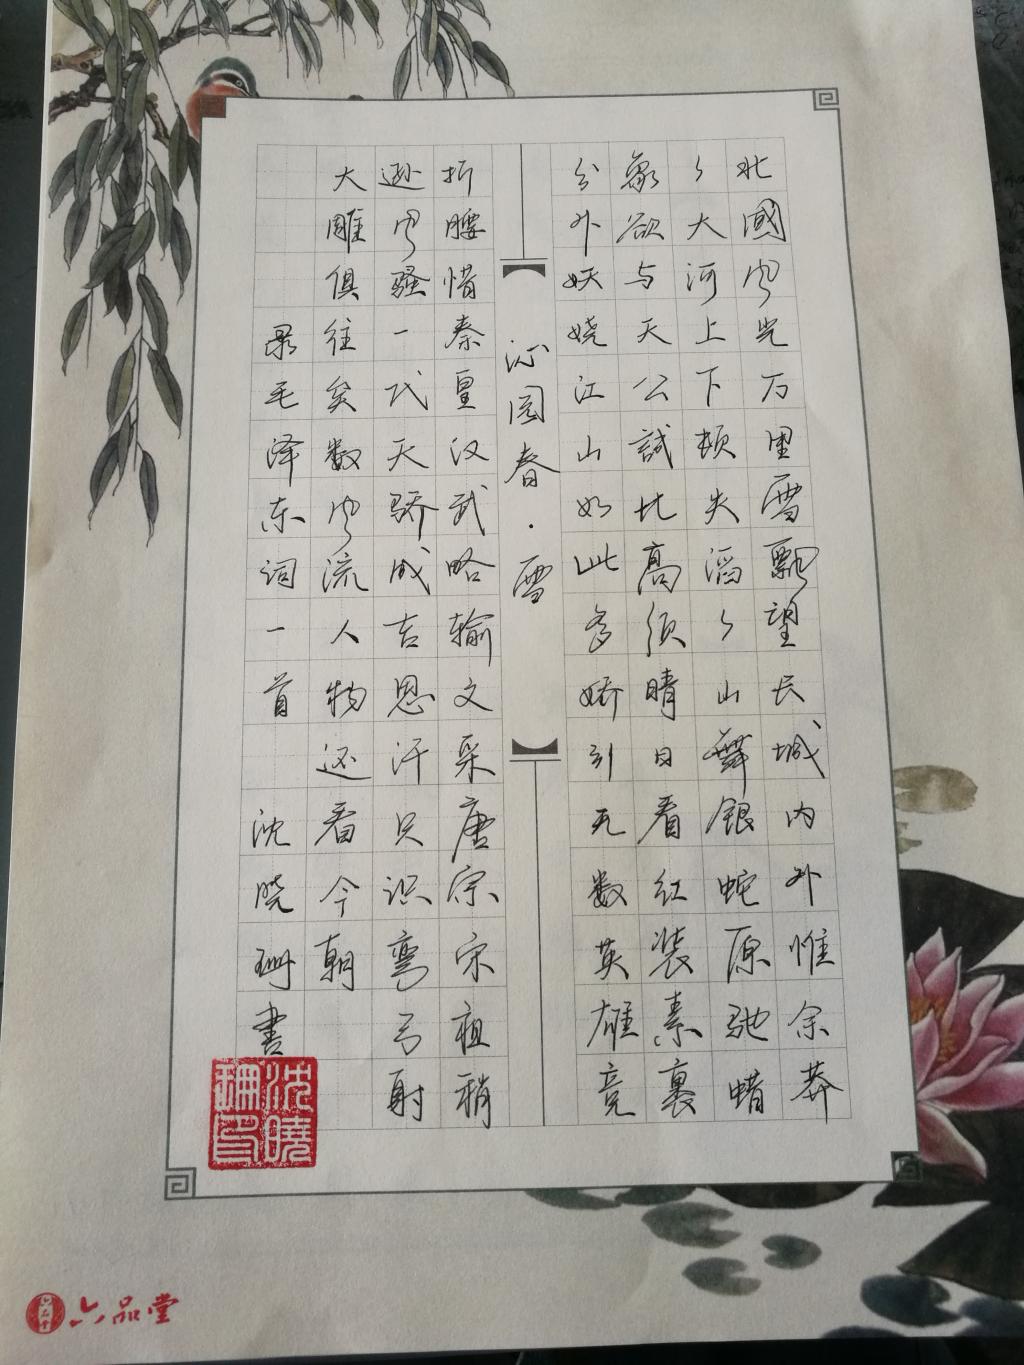 北國风光万里雪飘望长城内外惟余莽
々大河上下顿失滔々山舞银蛇原驰蜡
象欲与天公試比高须晴日看红装素裹
分外妖娆江山如此多娇引无数英雄竞
沁园春·雪
折腰惜秦皇汉武略输文采唐宗宋祖稍
逊风骚一代天骄成吉思汗只识弯弓射
大雕俱往矣数风流人物还看今朝
录毛泽东词一首 沈晓珊書
沈曉珊印
六品堂
六品堂